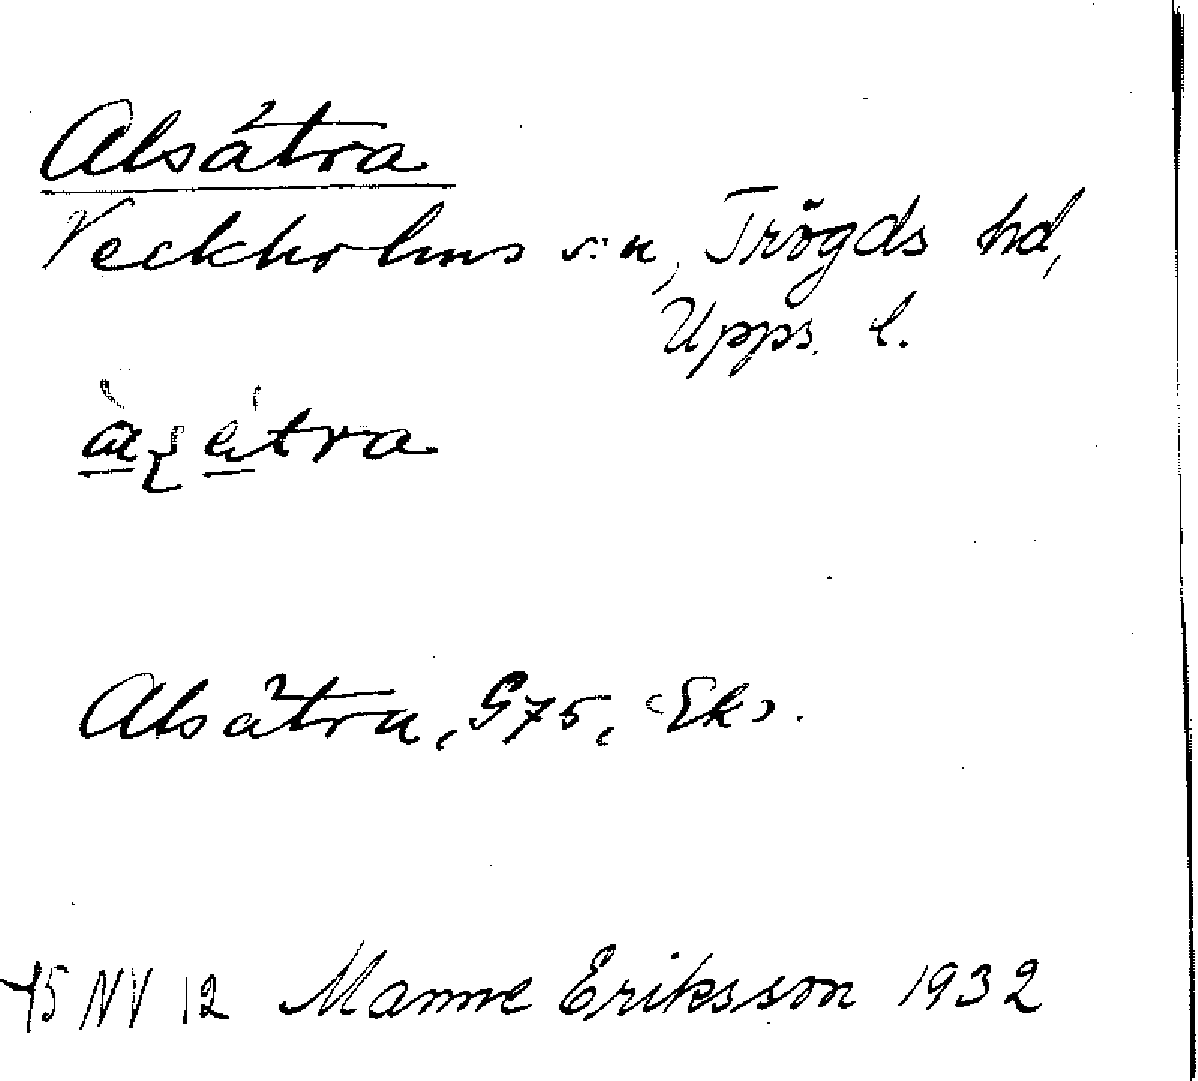 Alsätra
Veckholms s:n, Trögds hd,
Upps. l.
Alsätra, G75, Ek).
75 NV 12 Manne Eriksson 1932